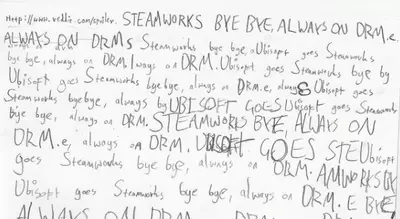 Http://www.reddit.com/spiler. STEAMWORKS BYE BYE, ALWAYS ON DRM.e,
ALWAYS ON DRMS Steamworks bye bye, aUbisoft goes Steamworks
bye bye, always on DRM. lways on DRM. Ubisoft goes Steamworks bye by
Ubisoft goes Steamworks bye bye, always on DRM.e, always Ubisoft goes
Steamworks bye bye, always by UBISOFT GOES Ubisoft goes Steamworks
bye bye, always on DRM. STEAMWORKS BYE, ALWAYS ON
DRM.e, always on DRM. UBISOFT GOES STEUbisoft
goes Steamworks bye bye, always on DRM. AMWORKS BY
Ubisoft goes Steamworks bye bye, always on DRM. E BYE,
ALWAYS ON DRM.